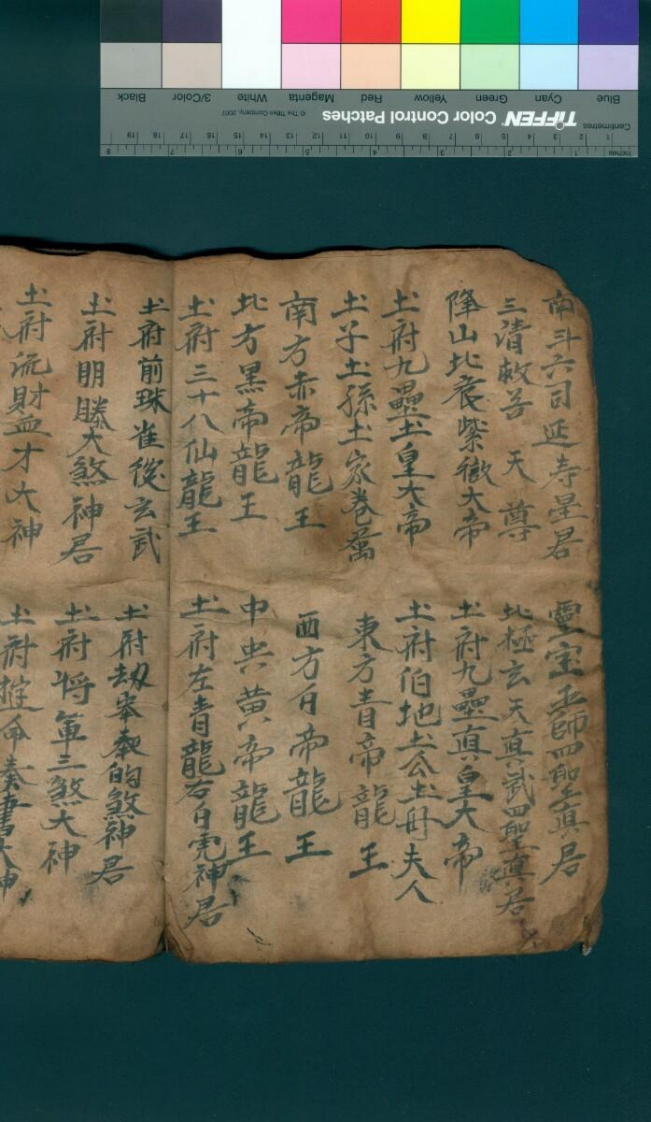 南斗六司延寿星君
靈宝玉師四聖真君
三清救苦天尊
北極玄天真武四聖真君
隆山北辰紫微大帝
土府九壘真皇大帝
土府九壘土皇大帝
土府伯地土公土母夫人
土子土孫土家卷属
東方青帝龍王
南方赤帝龍王
西方白帝龍王
北方黒帝龍王
中央黄帝龍王
土府三十八仙龍王
土府左青龍右白虎神君
土府前珠雀後玄武
土府劫的煞神君
土府明大煞神君
土府将軍三煞大神
土府流財血才大神
土府奏書大神
Blue
Cyan
Green
Yellow
Red
Magenta
White
3/Color
Black
TIFFEN Color Control Patches
© The Tiffen Company, 2007
Centimetres
1 2 3 4 5 6 7 8 9 10 11 12 13 14 15 16 17 18 19
Inches
1 2 3 4 5 6 7 8